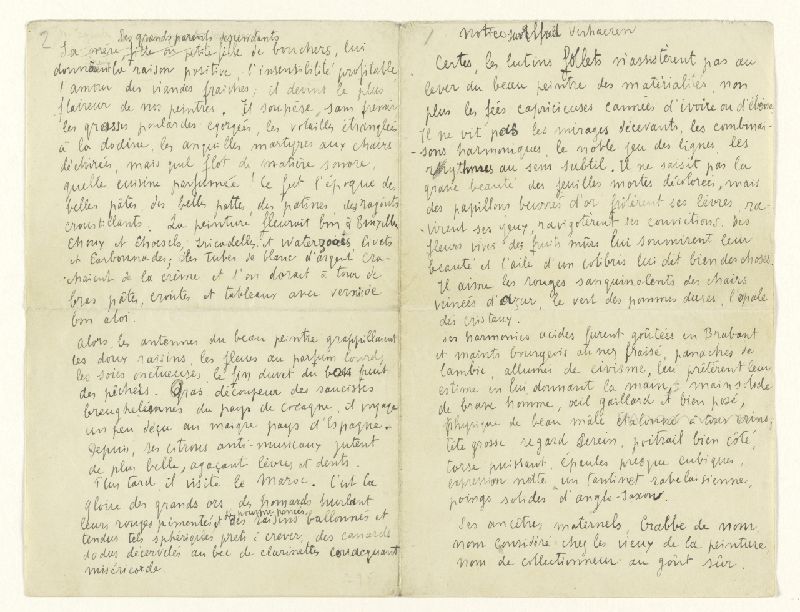 1
Notice sur Alfred Verhaeren
Certes, les lutins follets n'assistèrent pas au
lever du beau peintre des matérialités, non
plus les fées capricieuses camées d'ivoire ou d'ébène
Il ne vit pas les mirages décevants, les combinai-
-sons harmoniques, le noble jeu des lignes, les
rhythmes au sens subtil. Il ne saisit pas la
grave beauté des feuilles mortes décolorées, mais
des papillons beurrés d'or frôlèrent ses lèvres, ra-
virent ses yeux, ravigotèrent ses convictions. Des
fleurs vives des fruits mûrs lui soumirent leur
beauté et l'aile d'un colibris lui dit bien des choses.
Il aima les rouges sanguinolents des chairs
veinées d'azur, le vert des pommes dures, l'opale
des cristaux.
Ses harmonies acides furent goûtées en Brabant
et maints bourgeois au nez fraisé, panachés de
lambic, allumés de civisme, lui prêtèrent leur
estime en lui donnant la main, mains lode
de brave homme, oeil gaillard et bien posé,
physique de beau mâle
tête grosse regard serein, poitrail bien côté,
torse puissant, épaules presque cubiques,
expression nette un tantinet rabelaisienne,
poings solides d'anglo-saxons.
Ses ancêtres maternels, Crabbe de nom,
nom considéré chez les vieux de la peinture
nom de collectionneur au goût sûr.
2
Ses grands parents descendants
Sa mère fille ou petite fille de bouchers, lui
donnèrent la raison positive, l'insensibilité profitable
l'amour des viandes fraîches; il devint le plus
flaireur de nos peintres. Il soupèse, sans frémir
les grasses poulardes égorgées, les volailles étranglées
à la dodine, les anguilles martyres aux chairs
déchirées, mais quel flot de matière sonore,
quelle cuisine parfumée! Ce fut l'époque des
belles pâtes, des belles pattes, des patines, des ragoûts
croustillants. La peinture fleurait bon à Bruxelles
Choux et Choesels, fricadelles et Waterzooïs, civets
et Carbonnades; des tubes de blanc d'argent cra-
-chaient de la crème et l'on dorait à tour de
bras pâtes, croûtes et tableaux avec vernis de
bon aloi.
Alors les antennes du beau peintre grappillaient
les doux raisins, les fleurs au parfum lourd,
les soies onctueuses, le fin duvet du bon fruit
des pêchers. Gras découpeur des saucisses
breugheliennes du pays de cocagne, il voyage
un peu déçu au maigre pays d'Espagne.
Depuis, ses citrons anti-musicaux jutent
de plus belle, agaçant lèvres et dents.
Plus tard il visite le Maroc. C'est la
gloire des grands ors, des homards hurlant
leurs rouges pimentés et pourprés poncés
des raisins ballonnés et
tendus tels sphériques prêts à crever, des canards
dodus décervelés au bec de clarinettes couacquant
miséricorde.